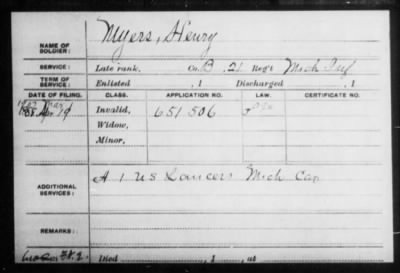 Myers, Henry
NAME OF SOLDIER:
SERVICE: Late rank, Co. B, 21 Reg't Mich Inf
TERM OF SERVICE: Enlisted , 1 Discharged , 1
DATE OF FILING. CLASS. APPLICATION NO. LAW. CERTIFICATE NO.
Apr 19 Invalid, 651 506
Widow,
Minor,
ADDITIONAL SERVICES: A 1 US Lancers Mich Cav
REMARKS:
Died , 1 , at